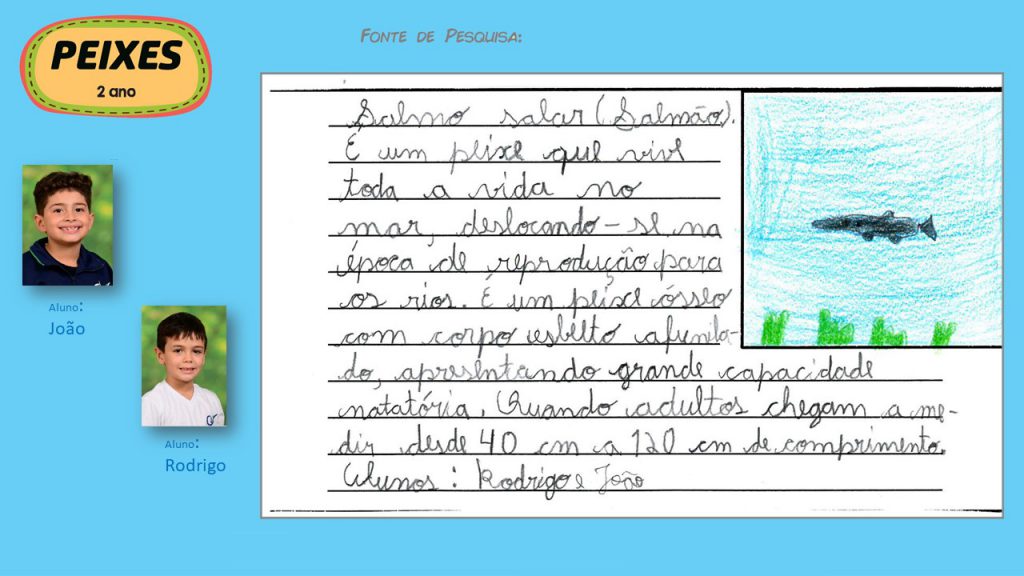 PEIXES
2 ano
FONTE DE PESQUISA:
Aluno:
João
Aluno:
Rodrigo
Salmo salar (Salmão).
É um peixe que vive
toda a vida no
mar, deslocando-se na
época de reprodução para
os rios. É um peixe ósseo
com corpo esbelto afunila-
do, apresentando grande capacidade
natatória. Quando adultos chegam a me-
dir desde 40 cm a 120 cm de comprimento.
Alunos: Rodrigo e João